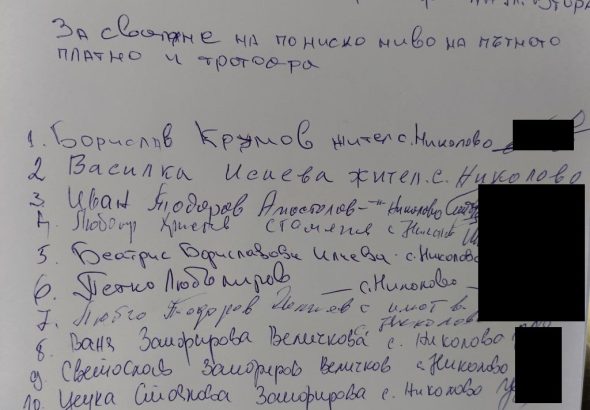 За сваляне на пониско ниво на пътното
платно и тротоара
1. Борислав Крумов жител с. Николово
2 Василка Исаева жител. с. Николово
3. Иван Тодоров Апостолов - Николово
4. Любомир с. Николово
5. Беатрис Бориславова Илиева - с. Николово
6. Петко Любомиров - с. Николово -
7. Тодоров с имот в
Николово
8. Ваня Замфирова Величкова с. Николово
9 Светослав Замфиров Величков с. Николово
10. Цецка Стоянова Замфирова с. Николово